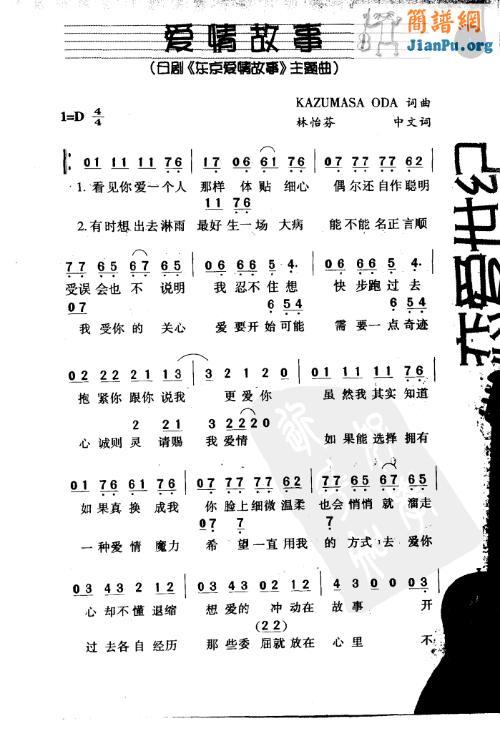 簡譜網
JianPu.org
爱情故事
(日剧《东京爱情故事》主题曲)
KAZUMASA ODA 词曲
1=D 4/4
林怡芬 中文词
01 11 11 76 | 17 06 61 76 | 07 77 77 62
1.看见你爱一个人 那样 体贴 细心 偶尔还自作聪明
11 76
2.有时想出去淋雨 最好生一场 大病 能不能名正言顺
77 65 67 65 | 06 66 5 4. | 06 66 5 4.
受误会也 不 说明 我 忍不 住 想 快 步跑 过 去
07 6 54 6 54
我 受你 的 关心 爱 要开 始可能 需 要一 点奇迹
02 22 21 13 | 3 2120 | 01 11 11 76
抱 紧你 跟你 说我 更爱你 虽然我其实知道
2 21 3 2220
心诚则 灵 请赐 我 爱情 如果能选择拥有
01 76 61 65 | 07 77 77 62 | 77 65 67 65
如果真 换 成我 你 脸上细微温柔 也会悄悄 就 溜走
07 7 7
一种爱 情 魔力 希 望一直用我 的 方式,去 爱你
03 43 212 | 03 43 212 | 43 00 03
心 却不 懂退缩 想爱的 冲动在 故事 开
(22)
过 去各 自经历 那 些委 屈就放在 心里 不
恋爱世纪